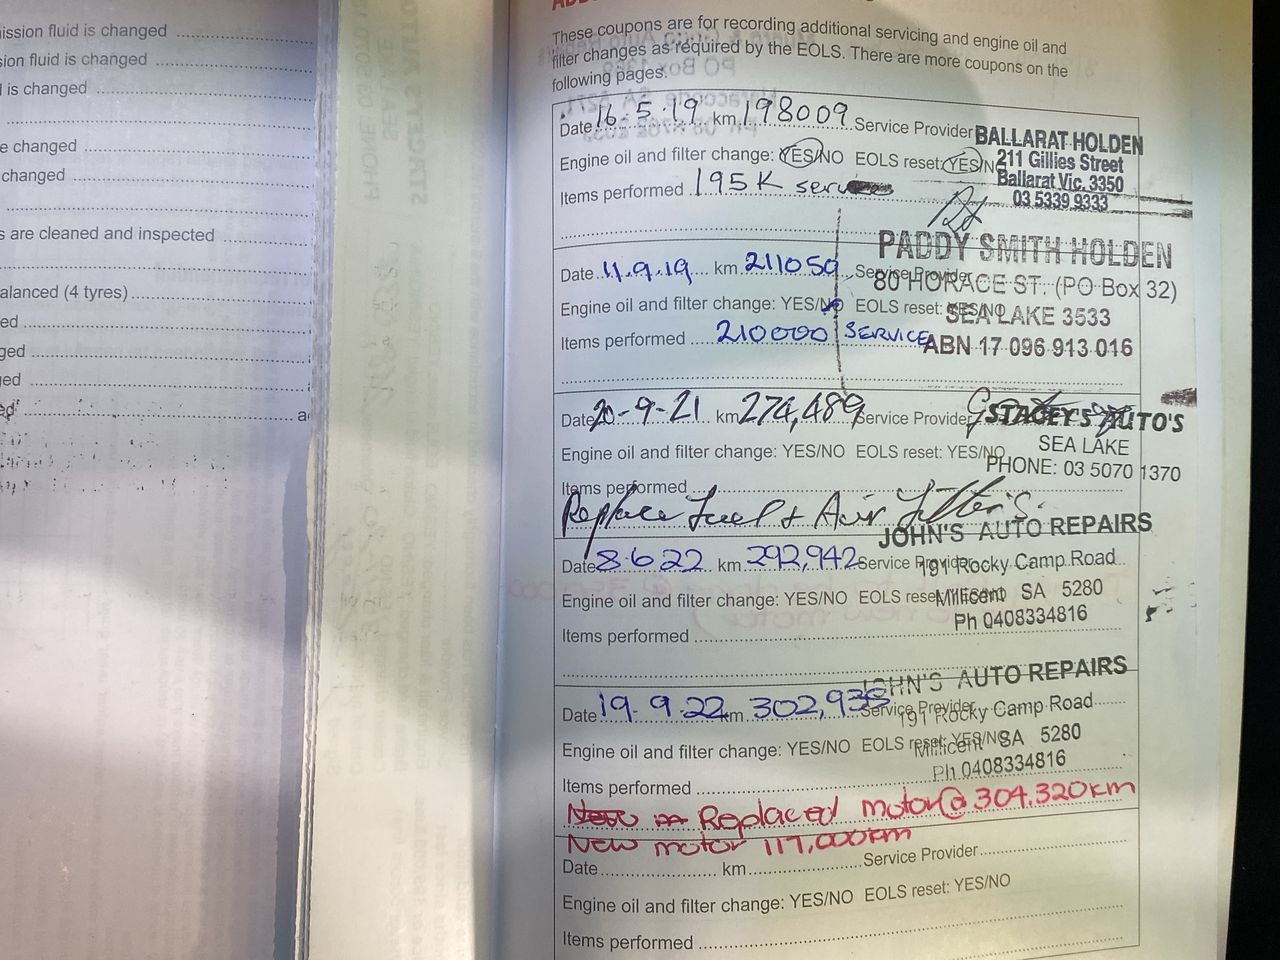 ission fluid is changed
sion fluid is changed
l is changed
e changed
changed
s are cleaned and inspected
alanced (4 tyres)
ed
ged
ed
These coupons are for recording additional servicing and engine oil and
filter changes as required by the EOLS. There are more coupons on the
following pages.
Date 16.5.19 km 198009 Service Provider BALLARAT HOLDEN
Engine oil and filter change: YES/NO EOLS reset: YES/N 211 Gillies Street
Ballarat Vic. 3350
Items performed 195K 03 5339 9333
PADDY SMITH HOLDEN
Date 11.9.19 km 211050 Service Provider 80 HORACE ST. (PO Box 32)
Engine oil and filter change: YES/NO EOLS reset: YES/NO SEA LAKE 3533
Items performed 210000 SERVICE ABN 17 096 913 016
Date 20-9-21 km 274,489 Service Provider STACEY'S AUTO'S
SEA LAKE
Engine oil and filter change: YES/NO EOLS reset: YES/NO PHONE: 03 5070 1370
Items performed
Replace Fuel + Air Filter's.
JOHN'S AUTO REPAIRS
Date 8.6.22 km 292,942 Service Provider 191 Rocky Camp Road
Engine oil and filter change: YES/NO EOLS reset Millicent SA 5280
Items performed Ph 0408334816
JOHN'S AUTO REPAIRS
Date 19.9.22 km 302,935 Service Provider 191 Rocky Camp Road
Engine oil and filter change: YES/NO EOLS reset: YES/NO Millicent SA 5280
Items performed Ph 0408334816
Replaced motor @ 304,320km
New motor 117,000km
Date km Service Provider
Engine oil and filter change: YES/NO EOLS reset: YES/NO
Items performed